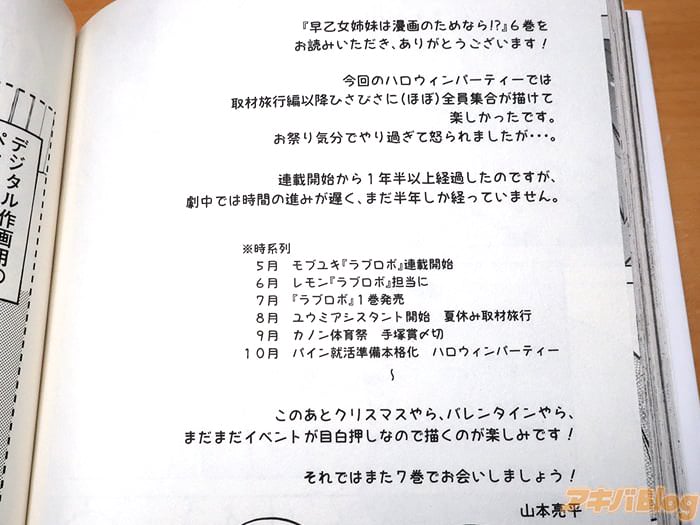 『早乙女姉妹は漫画のためなら!?』6巻を
お読みいただき、ありがとうございます！
今回のハロウィンパーティーでは
取材旅行編以降ひさびさに(ほぼ)全員集合が描けて
楽しかったです。
お祭り気分でやり過ぎて怒られましたが・・・。
連載開始から1年半以上経過したのですが、
劇中では時間の進みが遅く、まだ半年しか経っていません。
※時系列
5月 モブユキ『ラブロボ』連載開始
6月 レモン『ラブロボ』担当に
7月 『ラブロボ』1巻発売
8月 ユウミアシスタント開始 夏休み取材旅行
9月 カノン体育祭 手塚賞〆切
10月 パイン就活準備本格化 ハロウィンパーティー
～
このあとクリスマスやら、バレンタインやら、
まだまだイベントが目白押しなので描くのが楽しみです！
それではまた7巻でお会いしましょう！
山本亮平
デジタル作画用の
アキバBlog